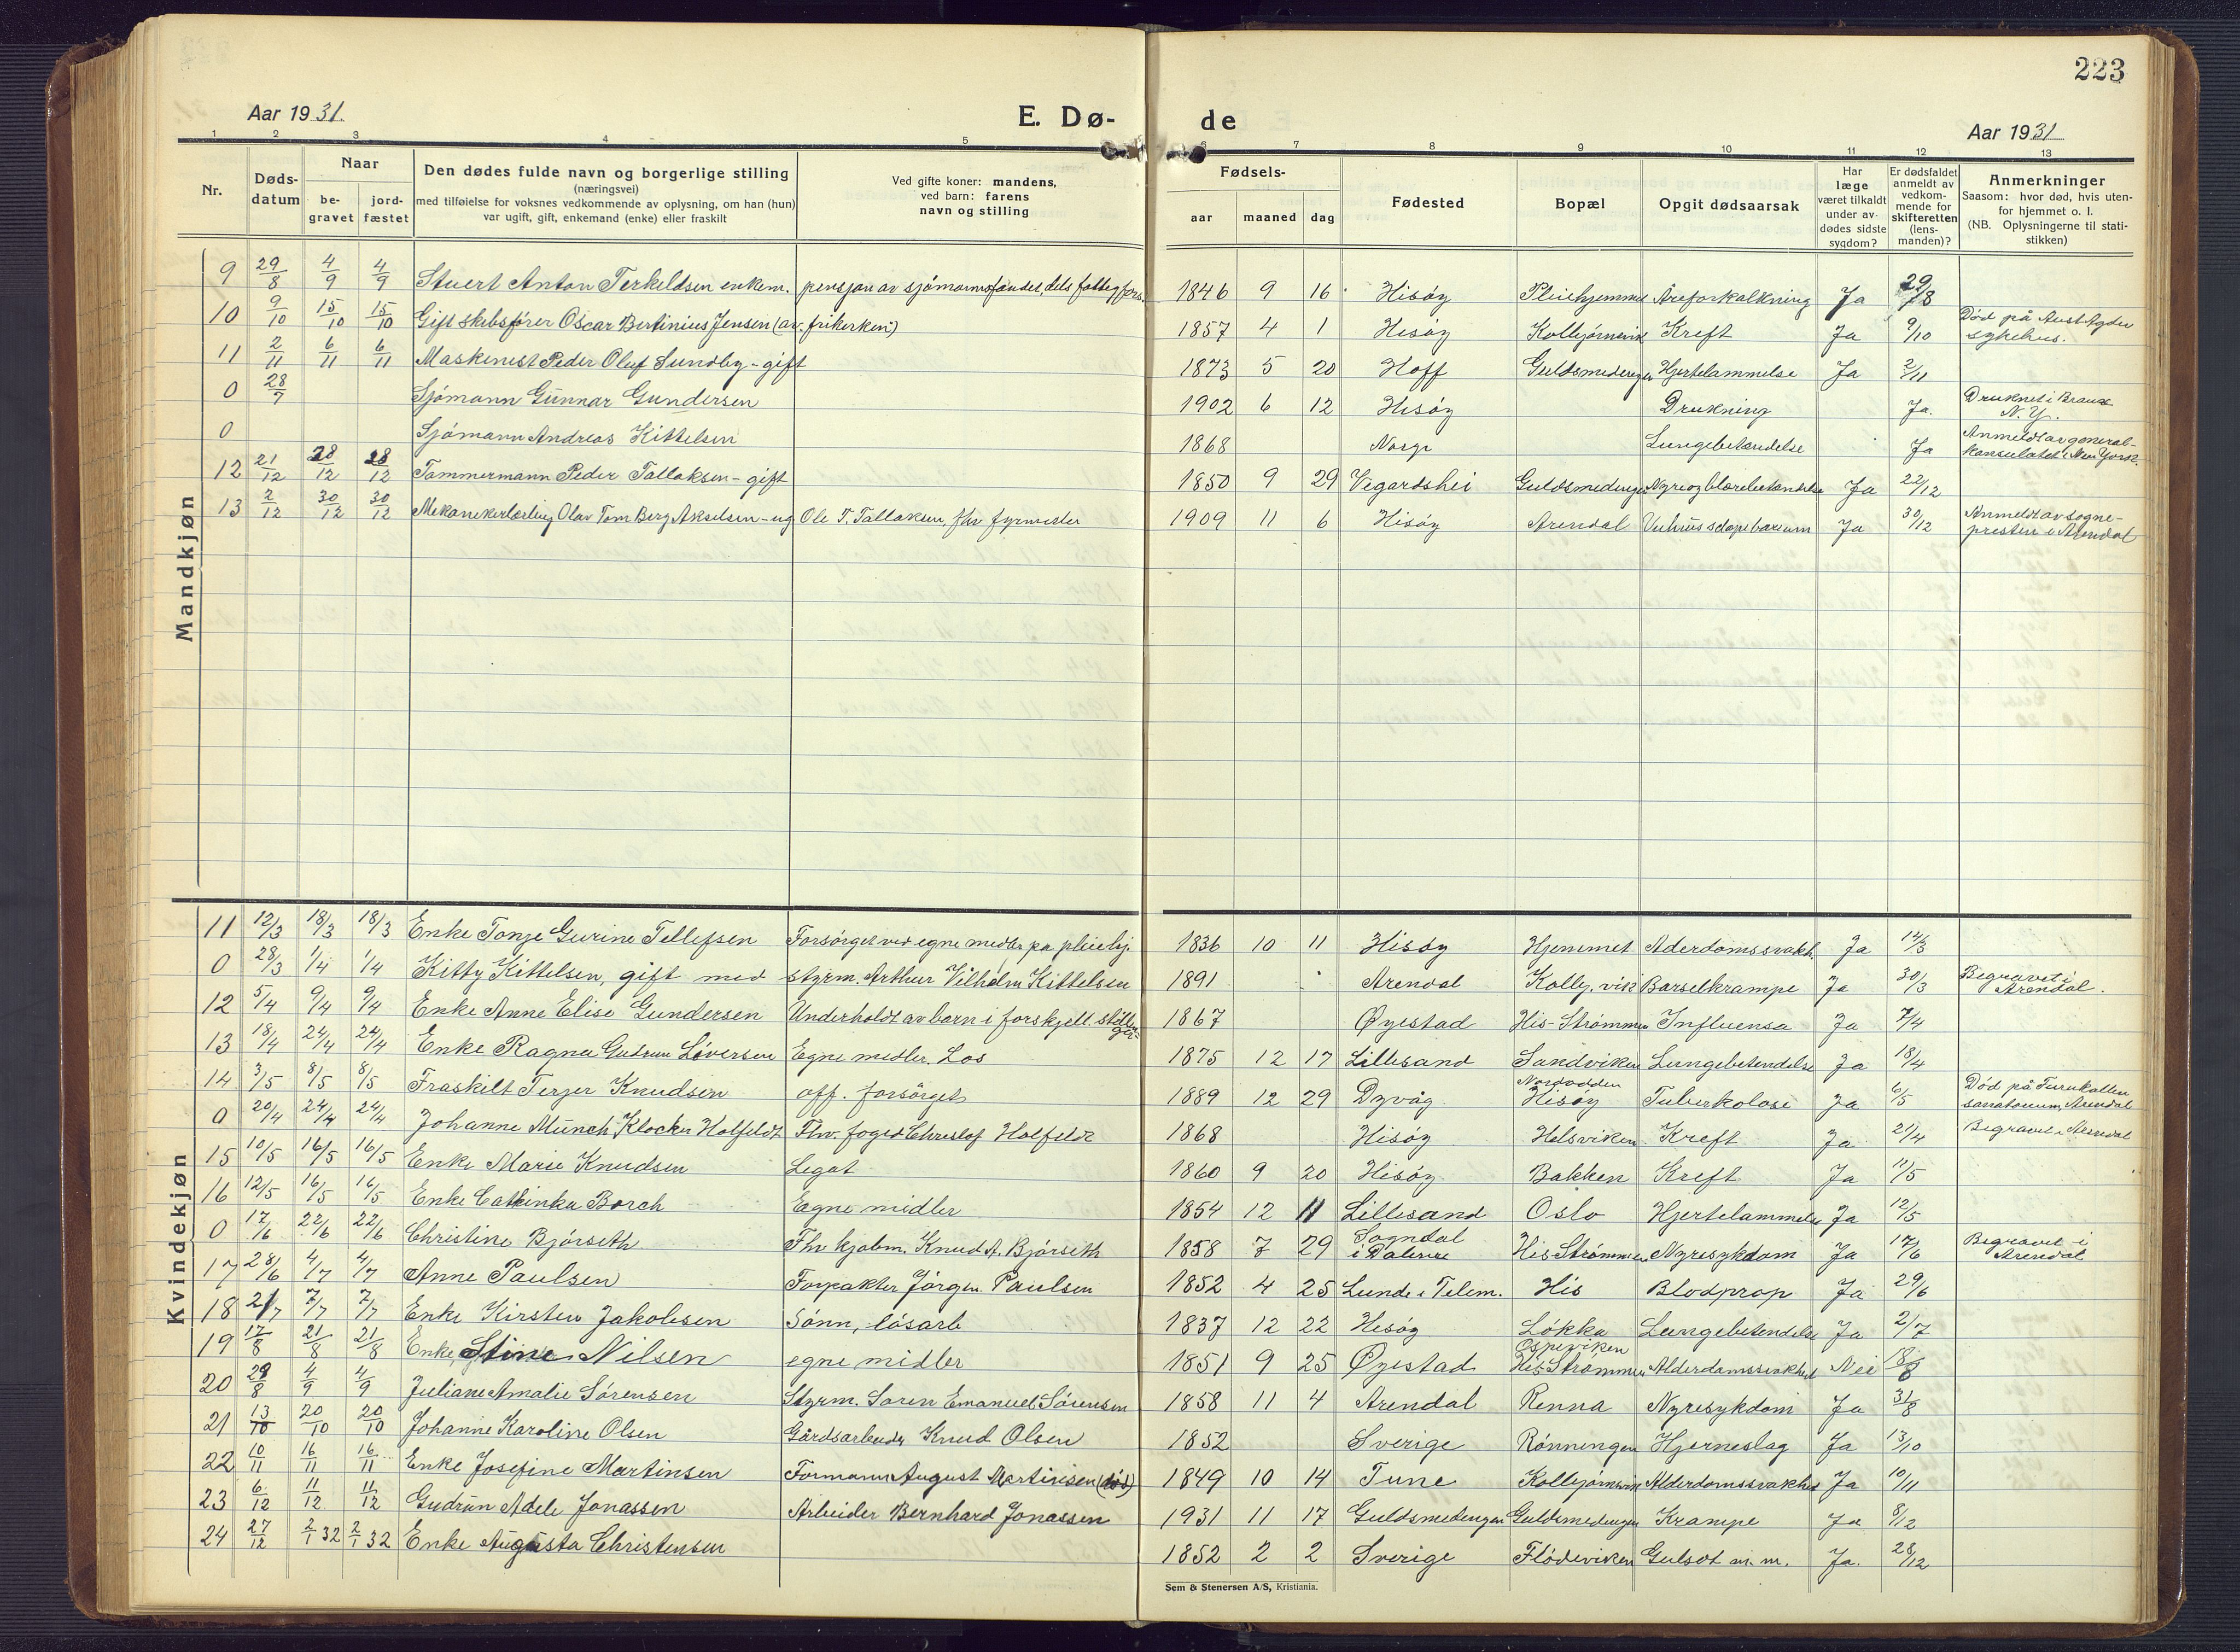 223
Aar 1931.
E. Dø-
de
Aar 1931
1 2 3 4 5 6 7 8 9 10 11 12 13
Nr.
Døds-
datum
Naar
be-
gravet
jord-
fæstet
Den dødes fulde navn og borgerlige stilling
(næringsvei)
med tilføielse for voksnes vedkommende av oplysning, om han (hun)
var ugift, gift, enkemand (enke) eller fraskilt
Ved gifte koner: mandens,
ved barn: farens
navn og stilling
Fødsels-
aar
maaned
dag
Fødested
Bopæl
Opgit dødsaarsak
Har
læge
været tilkaldt
under av-
dødes sidste
sygdom?
Er dødsfaldet
anmeldt av
vedkom-
mende for
skifteretten
(lens-
manden)?
Anmerkninger
Saasom: hvor død, hvis uten-
for hjemmet o. l.
(NB. Oplysningerne til stati-
stikken)
Mandkjøn
9 29/8 4/9 4/9 Stuert Anton Terkeldsen enkem. pensjon av sjømannsfondet, dels fattigfors. 1846 9 16 Hisøy Pleiehjemmet Areforkalkning Ja 29/8
10 9/10 15/10 15/10 Gift skibsfører Oscar Bertinius Jensen (av frikirken) 1857 4 1 Hisøy Kolbjørnsvik Kreft Ja 9/10 Død på Aust-Agder
sykehus.
11 2/11 6/11 6/11 Maskinist Peder Oluf Sundby - gift 1873 5 20 Hoff Guldsmedengen Hjertelammelse Ja 2/11
0 28/7 Sjømann Gunnar Gundersen 1902 6 12 Hisøy Drukning Ja. Druknet i
N.Y.
0 Sjømann Andreas Kittelsen 1868 Norge Lungebetendelse Ja Anmeldt av general-
konsulatet i New York.
12 21/12 28/12 28/12 Tømmermann Peder Tallaksen - gift 1850 9 29 Vegårdshei Guldsmedengen Nyre og blærebetendelse Ja 22/12
13 2/12 30/12 30/12 Mekanikerlærling Olav Tom Berg Akselsen - ug Ole T. Tallaksen, fhv fyrmester 1909 11 6 Hisøy Arendal Ja 30/12 Anmeldt av sogne-
presten i Arendal
Kvindekjøn
11 12/3 18/3 18/3 Enke Tonje Gurine Tellefsen Forsørget ved egne midler på pleiehj. 1836 10 11 Hisøy Hjemmet Alderdomssvakh. Ja 12/3
0 28/3 1/4 1/4 Kitty Kittelsen, gift med styrm. Arthur Vilhelm Kittelsen 1891 Arendal Kolbj.vik Barselkrampe Ja 30/3 Begravet i
Arendal.
12 5/4 9/4 9/4 Enke Anne Elise Gundersen Underholdt av barn i forskjell. stillinger 1867 Øyestad His-Strømmen Influensa Ja 7/4
13 18/4 24/4 24/4 Enke Ragna Gudrun Løversen Egne midler. Los 1875 12 17 Lillesand Sandviken Lungebetendelse Ja 18/4
14 3/5 8/5 8/5 Fraskilt Terjer Knudsen off. forsørget 1889 12 29 Dyvåg Nordodden
Hisøy Tuberkolose Ja 6/5 Død på Furukollen
sanatorium, Arendal
0 20/4 24/4 24/4 Johanne Münch Klocker Holfeldt Fhv. foged Christof Holfeldt 1868 Hisøy Helsviken Kreft Ja 21/4 Begravet i Arendal
15 10/5 16/5 16/5 Enke Marie Knudsen Legat 1860 9 20 Hisøy Bakken Kreft Ja 11/5
16 12/5 16/5 16/5 Enke Cathinka Borch Egne midler 1854 12 11 Lillesand Oslo Hjertelammelse Ja 12/5
0 17/6 22/6 22/6 Christine Bjørseth Fhv kjøbm. Knud A. Bjørseth 1858 7 29 Sogndal
i Dalerne His Strømmen Nyresykdom Ja 17/6 Begravet i
Arendal
17 28/6 4/7 4/7 Anne Paulsen Forpakter Jørgen Paulsen 1852 4 25 Lunde i Telem. His Blodprop Ja 29/6
18 2/7 7/7 7/7 Enke Kirsten Jakobsen Sønn, løsarb 1837 12 22 Hisøy Løkka Lungebetendelse Ja 2/7
19 17/8 21/8 21/8 Enke Stine Nilsen egne midler 1851 9 25 Øyestad Ospeviken
His Strømmen Alderdomssvakhet Nei 18/8
20 29/8 4/9 4/9 Juliane Amalie Sørensen Styrm. Søren Emanuel Sørensen 1858 11 4 Arendal Renna Nyresykdom Ja 31/8
21 13/10 20/10 20/10 Johanne Karoline Olsen Gårdsarbeider Knud Olsen 1852 Sverige Rønningen Hjerneslag Ja 13/10
22 10/11 16/11 16/11 Enke Josefine Martinsen Formann August Martinsen (død) 1849 10 14 Tune Kolbjørnsvik Alderdomssvakhet Ja 10/11
23 6/12 11/12 11/12 Gudrun Adele Jonassen Arbeider Bernhard Jonassen 1931 11 17 Guldsmedengen Guldsmedengen Krampe Ja 8/12
24 27/12 2/1 32 2/1 32 Enke Augusta Christensen 1852 2 2 Sverige Flødeviken Gulsot m.m. Ja. 28/12
Sem & Stenersen A/S, Kristiania.